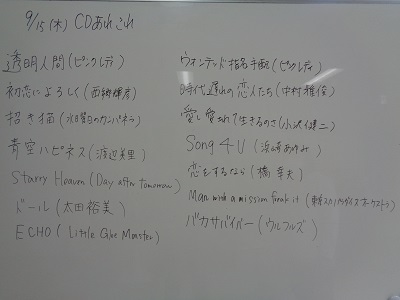 9/15(木) CDあれこれ
透明人間(ピンクレディ)
初恋によろしく(西郷輝彦)
招き猫(水曜日のカンパネラ)
青空ハピネス(渡辺美里)
Starry Heaven (Day after tomorrow)
ドール(太田裕美)
ECHO( Little Glee Monster)
ウォンテッド指名手配(ピンクレディ)
時代遅れの恋人たち(中村雅俊)
愛し愛されて生きるのさ(小沢健二)
Song 4 U (浜崎あゆみ)
恋をするなら(橋幸夫)
Man with a mission funk it (東京スカパラダイスオーケストラ)
バカサバイバー(ウルフルズ)